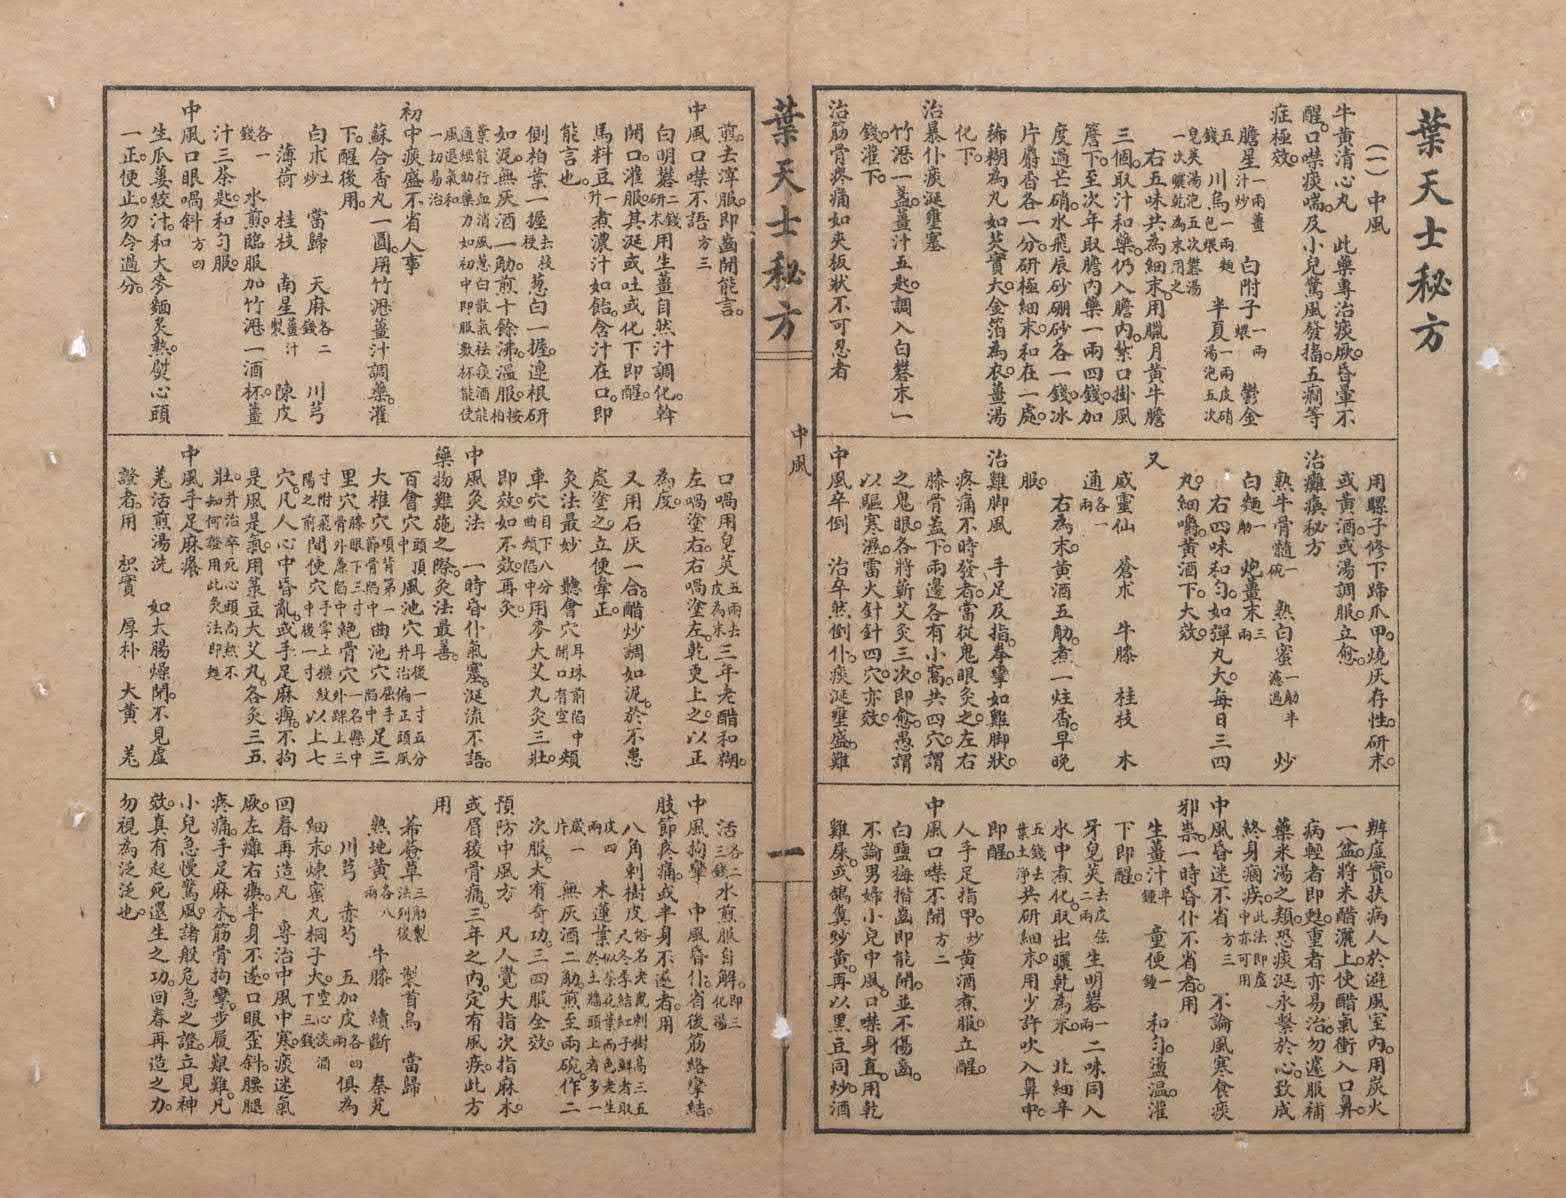 葉天士秘方
(一)中風
牛黃清心丸　此藥專治痰厥昏暈不
醒口噤痰喘及小兒驚風發搐五癇等
症極效
膽星一兩薑汁炒　白附子一兩煨　鬱金
五錢　川烏一兩麵包煨　半夏一兩皮硝湯泡五次
皂莢湯泡五次礬湯一次曬乾為末用之
右五味共為細末用臘月黃牛膽
三個取汁和藥仍入膽內紮口掛風
簷下至次年取膽內藥一兩四錢加
度過芒硝水飛辰砂硼砂各一錢冰
片麝香各一分研極細末和在一處
稀糊為丸如芡實大金箔為衣薑湯
化下
治暴仆痰涎壅塞
竹瀝一盞薑汁五匙調入白礬末一
錢灌下
治筋骨疼痛如夾板狀不可忍者
用騾子修下蹄爪甲燒灰存性研末
或黃酒或湯調服立愈
治癱瘓秘方
熟牛骨髓一碗　熟白蜜一觔半濾過　炒
白麵一觔　炮薑末三兩
右四味和勻如彈丸大每日三四
丸細嚼黃酒下大效
又
威靈仙　蒼朮　牛膝　桂枝　木
通各一兩
右為末黃酒五觔煮一炷香早晚
服
治雞脚風　手足及指拳攣如雞脚狀
疼痛不時發者當從鬼眼灸之左右
膝骨蓋下兩邊各有小窩共四穴謂
之鬼眼各將蘄艾灸三次即愈愚謂
以驅寒濕雷火針針四穴亦效
中風卒倒　治卒然倒仆痰涎壅盛難
辨虛實扶病人於避風室內用炭火
一盆將米醋灑上使醋氣衝入口鼻
病輕者即甦重者亦易治勿遽服補
藥米湯之類恐痰涎永繫於心致成
終身痼疾此法即虛中亦可用
中風昏迷不省方三　不論風寒食痰
邪祟一時昏仆不省者用
生薑汁半鍾　童便一鍾　和勻盪温灌
下即醒
牙皂莢去皮弦二兩　生明礬一兩　二味同入
水中煮化取出曬乾為末　北細辛
五錢去葉土淨　共研細末用少許吹入鼻中
即醒
人手足指甲炒黃酒煮服立醒
中風口噤不開方二
白鹽梅揩齒即能開並不傷齒
不論男婦小兒中風口噤身直用乾
雞屎或鴿糞炒黃再以黑豆同炒酒
葉天士秘方
中風
一
煎去滓服即齒開能言
中風口噤不語方三
白明礬二錢研末用生薑自然汁調化斡
開口灌服其涎或吐或化下即醒
馬料豆一升煮濃汁如飴含汁在口即
能言也
側柏葉一握去枝梗葱白一握連根研
如泥無灰酒一觔煎十餘沸温服按柏
葉能行血消風葱白散氣祛痰酒能
通經助藥力如初中即服數杯能使
風退氣和
一切易治
初中痰盛不省人事
蘇合香丸一圓用竹瀝薑汁調藥灌
下醒後用
白朮土炒　當歸　天麻各二錢　川芎
薄荷　桂枝　南星薑汁製　陳皮
各一錢　水煎臨服加竹瀝一酒杯薑
汁三茶匙和勻服
中風口眼喎斜方四
生瓜蔞絞汁和大麥麵炙熱熨心頭
一正便止勿令過分
口喎用皂莢五兩去皮為末三年老醋和糊
左喎塗右右喎塗左乾更上之以正
為度
又用石灰一合醋炒調如泥於不患
處塗之立便牽正
灸法最妙　聽會穴耳珠前陷中開口有空頰
車穴目下八分曲頰陷中用麥大艾丸灸三壯
即效如不效再灸
中風灸法　一時昏仆氣塞涎流不語
藥物難施之際灸法最善
百會穴頭頂中風池穴耳後一寸五分并治偏正頭風
大椎穴項背第一節骨陷中曲池穴屈手陷中足三
里穴膝眼下三寸骨外廉陷中絕骨穴一名懸中外踝上三
寸附飛陽之前間使穴手掌上橫紋中後一寸以上七
穴凡人心中昏亂或手足麻痺不拘
是風是氣用菉豆大艾丸各灸三五
壯并治卒死心頭尚熱不知何證用此灸法即甦
中風手足麻癢
羌活煎湯洗　如大腸燥閉不見虛
證者用　枳實　厚朴　大黃　羌
活各二三錢水煎服自解即三化湯
中風拘攣　中風昏仆省後筋絡攣結
肢節疼痛或半身不遂者用
八角刺樹皮俗名老鼠刺樹高三五尺冬季結紅子鮮者取
皮四兩　木蓮葉似茶花葉兩色老生於土牆頭上者多一
歲一片　無灰酒二觔煎至兩碗作二
次服大有奇功三四服全效
預防中風方　凡人覺大指次指麻木
或眉稜骨痛三年之內定有風疾此方
用
豨薟草三觔製法列後　製首烏　當歸
熟地黃各八兩　牛膝　續斷　秦艽
川芎　赤芍　五加皮各四兩　俱為
細末煉蜜丸桐子大空心淡酒下三錢
回春再造丸　專治中風中寒痰迷氣
厥左癱右瘓半身不遂口眼歪斜腰腿
疼痛手足麻木筋骨拘攣步履艱難凡
小兒急慢驚風諸般危急之證立見神
效真有起死還生之功回春再造之力
勿視為泛泛也